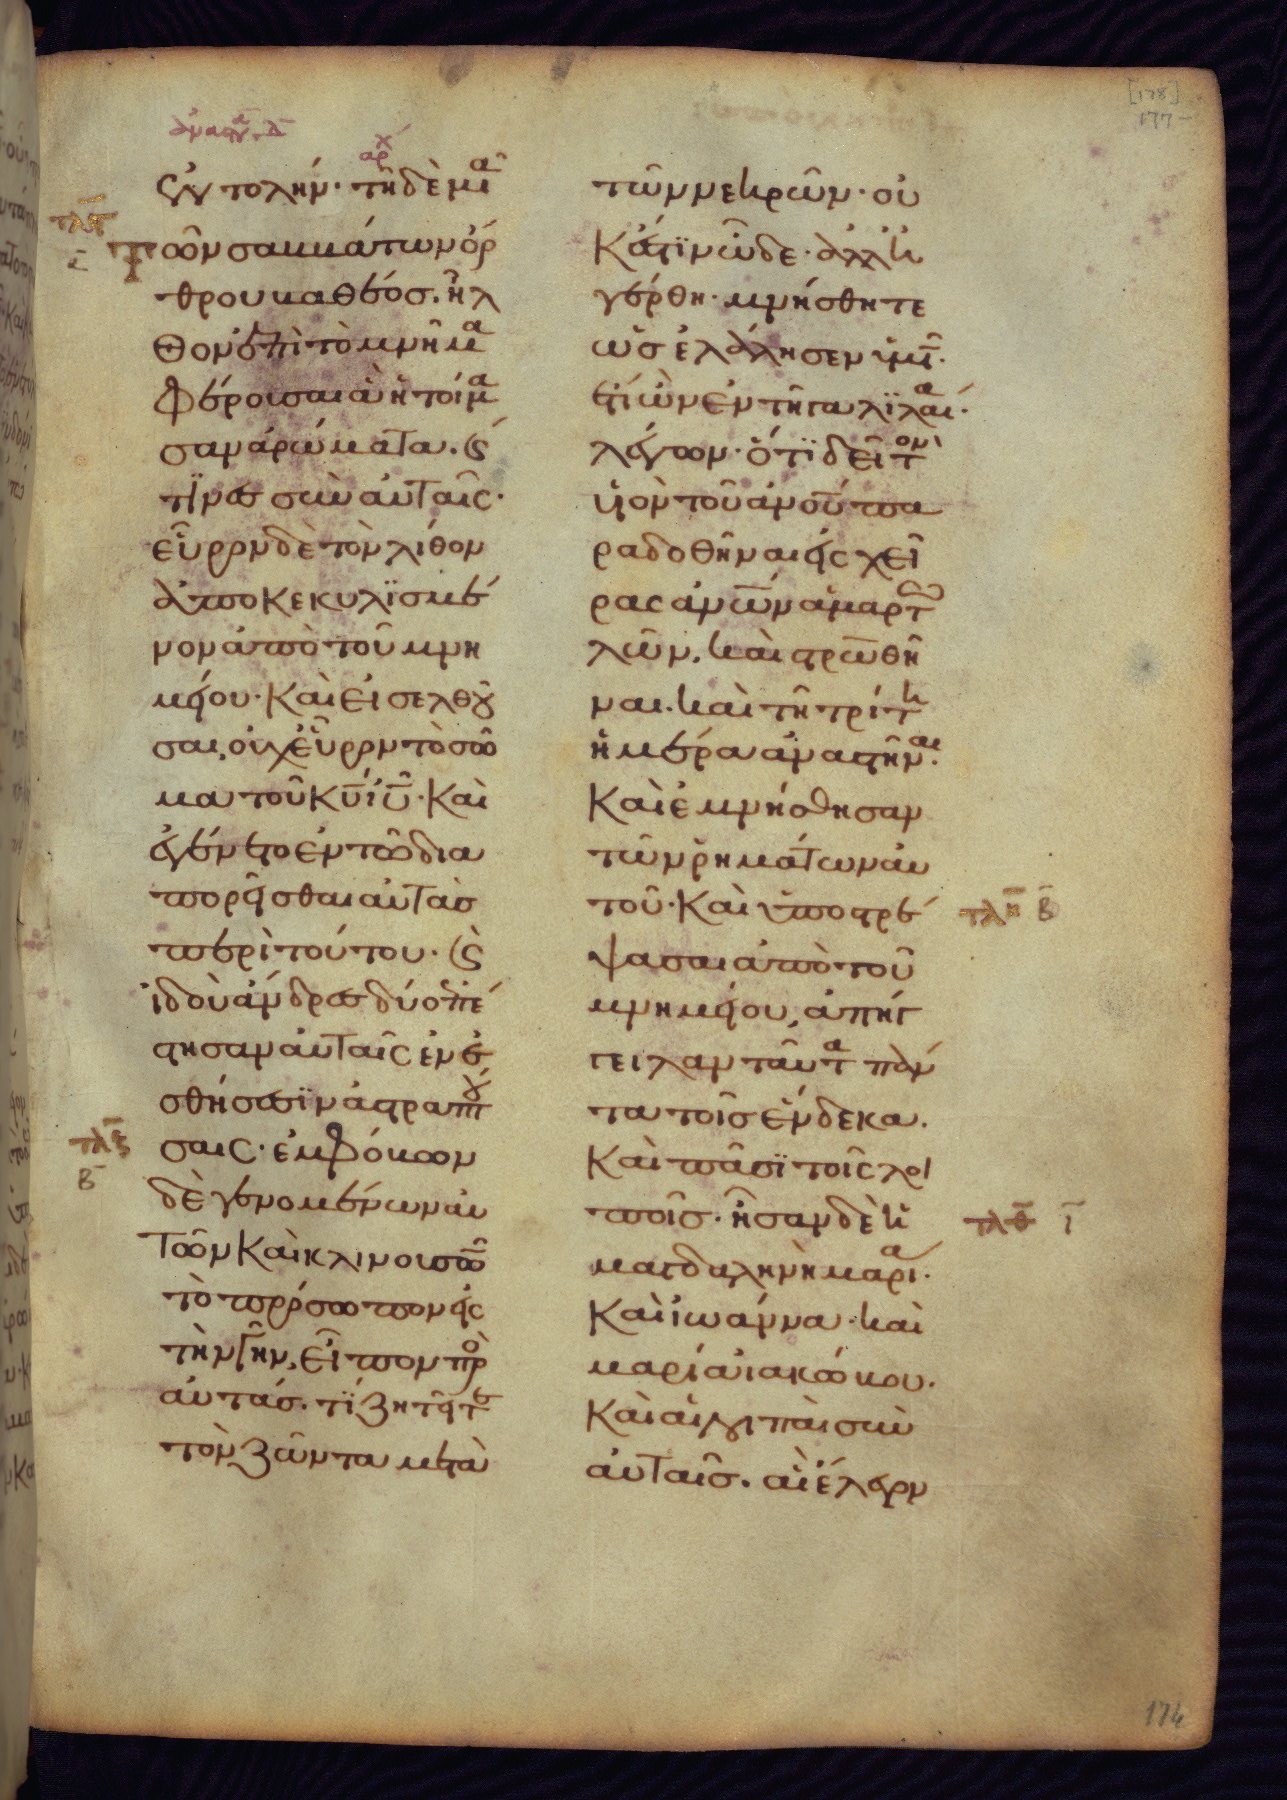 [178]
177
ἀναστα δ
αρχ
ἐντολήν· τῆ δὲ μιᾶ
τλϛ
ῑ
Τῶν σαββάτων ὄρ
θρου βαθέος. ἦλ
θον ἐπὶ τὸ μνῆμα
φέρουσαι ἃ ἡτοίμα
σαν ἀρώματα. ϗ
τϊνεσ σὺν αὐταῖς·
εὗρον δὲ τὸν λίθον
ἀποκεκυλϊσμέ
νον ἀπὸ τοῦ μνη
μείου· Καὶ εἰσελθοῦ
σαι, οὐχ εὗρον τὸ σῶ
μα τοῦ κ̅υ̅ ι̅υ̅· Καὶ
ἐγένετο ἐν τῶ δια
πορεῖσθαι αὐτὰσ
περὶ τούτου· ϗ
ἰδοὺ ἄνδρεσ δύο ἐπέ
στησαν αὐταῖς ἐν ἐ
σθήσεσϊν ἀστραπτού
τλζ
β
σαις· ἐμφόβων
δὲ γενομένων αὐ
τῶν Καὶ κλινουσῶν
τὸ πρόσωπον εἰς
τὴν γῆν, εἶπον πρὸ
αὐτάσ. τί ζητεῖτε
τὸν ζῶντα μετὰ
τῶν νεκρῶν· οὐ
Κἔστϊν ὧδε· ἀλλ' ἠ
γέρθη· μνήσθητε
ὡσ ἐλάλησεν ὑμῖ·
ἔτι ὢν ἐν τῆ γαλϊλαία·
λέγων· ὅτϊ δεῖ τὸν
υἱὸν τοῦ ἀν̅ο̅υ̅ πα
ραδοθῆναι εἰς χεῖ
ρας ἀν̅ω̅ν̅ ἁμαρτω
λῶν, καὶ στρω̅θῆ
ναι. καὶ τῆ τρίτη
ἡμέρα ἀναστῆναι.
Καὶ ἐμνήσθησαν
τῶν ῥημάτων αὐ
τοῦ· Καὶ ὑποστρέ
τλη β
ψασαι ἀπὸ τοῦ
μνημείου, ἀπήγ
γειλαν ταῦτα πάν
τα τοῖσ ἕνδεκα.
Καὶ πᾶσϊ τοῖς λοι
ποῖσ· ἦσαν δὲ ἡ
τλθ ῑ
μαγδαληνὴ μαρία·
Καὶ ἰωάννα· καὶ
μαρία ἰακώβου.
Καὶ αἱ λοιπαὶ σὺν
αὐταῖσ. αἳ ἔλεγον
174